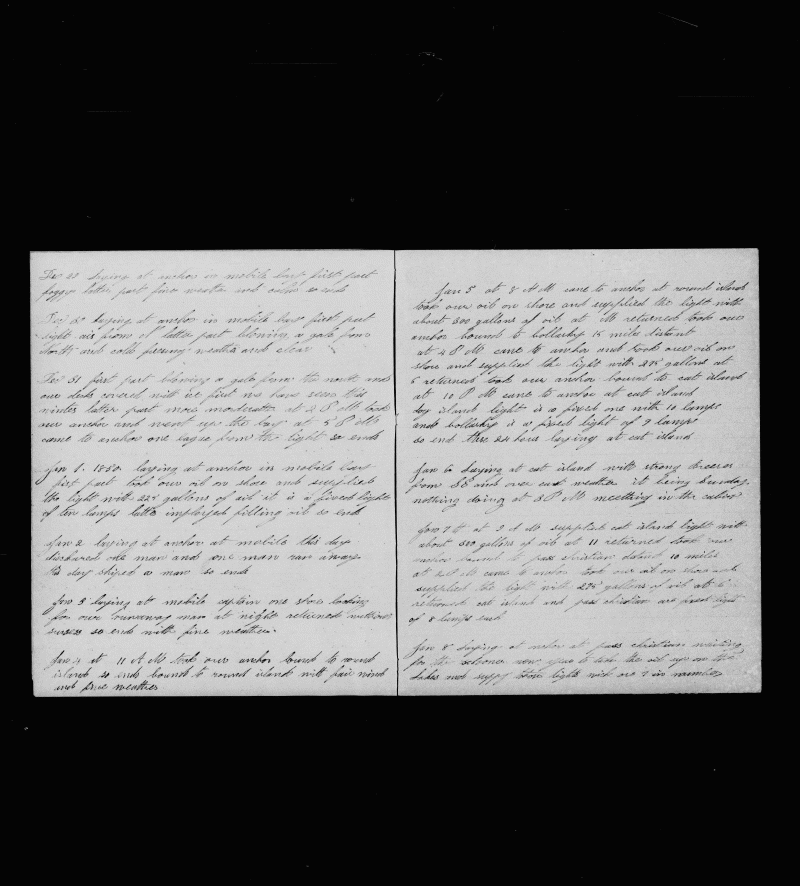 Dec 29 laying at anchor in mobile bay first part
foggy latter part fine weather and so ends
Dec 30 laying at anchor in mobile bay first part
light airs from latter part blowing a gale from
North and cold freesing weather and clear
Dec 31 first part blowing a gale from the north and
our decks covered with ice first we have seen this
winter latter part more moderate at 2 P M took
our anchor and went up the bay at 5 P M
came to anchor one legue from the light so ends
Jan 1. 1850. laying at anchor in mobile bay
first part took our oil on shore and supplied
the light with 225 gallons of oil it is a fixed light
of ten lamps latter imployed filling oil so end
Jan 2 laying at anchor at mobile this day
discharged one man and one man ran away
this day shiped a man so ends
Jan 3 laying at mobile captin one shore looking
for our runaway man at night returned without
suses so ends with fine weather.
Jan 4 at 11 A M took our anchor bound to round
island so ends bound to round island with fair wind
and fine weather
Jan 5 at 8 A M came to anchor at round island
took our oil on shore and supplied the light with
about 300 gallons of oil at M returned took our
anchor bound to 15 miles distant
at 4 P M came to anchor and took our oil on
shore and supplied the light with 225 gallons at
5 returned took our anchor bound to cat island
at 10 P M came to anchor at cat island
island light is a fixed one with 10 lamps
and is a fixed light of 9 lamps
so end thes 24 hours laying at cat island
Jan 6 laying at cat island with strong breeses
from SE and over cast weather it being Sunday
nothing doing at 3 P M meetting in the cabin
Jan 7th at 9 A M supplied cat island light with
about 350 gallons of oil at 11 returned took our
anchor bound to pass christian distant 10 miles
at M came to anchor took our oil on shore and
supplied the light with 275 gallons of oil at 5
returned cat island and pass christian are fixed light
of 8 lamps each
Jan 8 laying at anchor at pass christian waiting
for the schoner to take the oil up on the
lakes and suppy them lights wich are in number